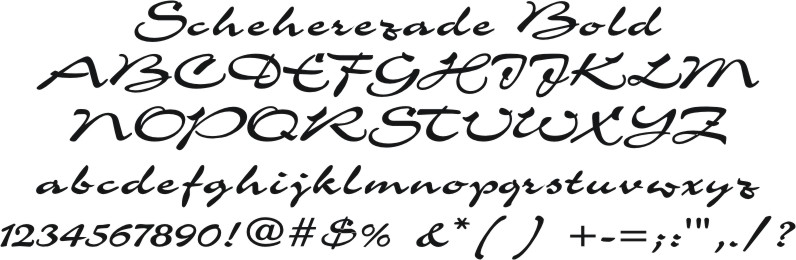 Scheherezade Bold
ABCDEFGHIJKLM
NOPQRSTUVWXYZ
abcdefghijklmnopqrstuvwxyz
1234567890!@#$% &*( ) +-=;:'",./?